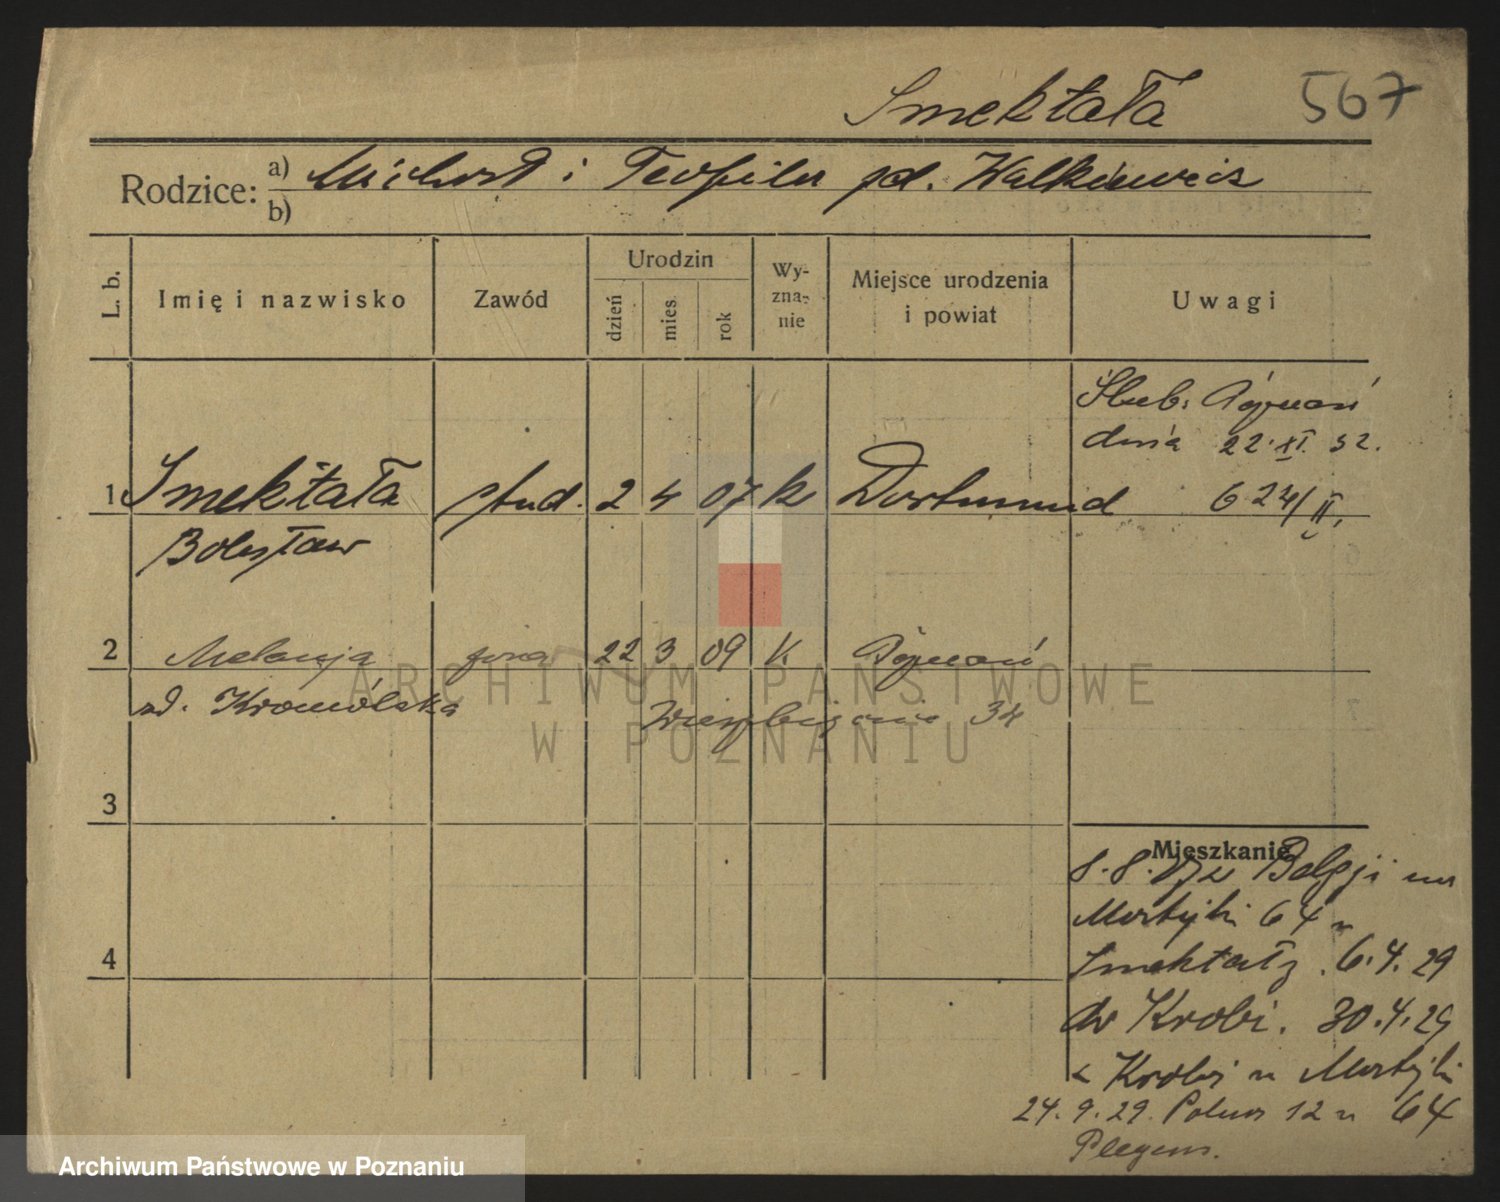 Smektała 567
Rodzice: a) Michał i Teofila zd. Walkiewicz
b)
L. b. Imię i nazwisko Zawód Urodzin dzień mies rok Wy-zna-nie Miejsce urodzenia i powiat Uwagi
Ślub: Poznań
dnia 22.XI.32.
1 Smektała stud. 2 4 07 k Dortmund 624/II.
Bolesław
2 Melanja żona 22 3 09 k. Poznań
zd. Kromólska 34
3
Mieszkanie
8.8. z Belgji na
Martyki 64 u
4 Smektały. 6.4.29
do Krobi. 30.4.29
z Krobi n Martyki
24.9.29. 12 u 64
ARCHIWUM PAŃSTWOWE
W POZNANIU
Archiwum Państwowe w Poznaniu